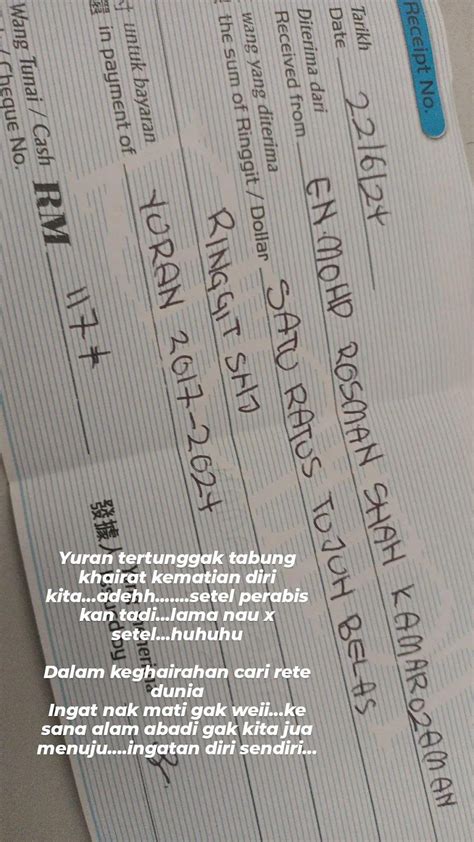 Receipt No.
Tarikh
Date 22/6/24
Diterima dari
Received from EN. MOHD ROSMAN SHAH KAMAROZAMAN
wang yang diterima
the sum of Ringgit / Dollar SATU RATUS TUJUH BELAS
RINGGIT SHJ
untuk bayaran
in payment of YURAN 2017-2024
Wang Tunai / Cash
Cheque No.
RM 117 ≠
發據人
Yuran tertunggak tabung
khairat kematian diri
kita...adehh.......setel perabis
kan tadi...lama nau x
setel...huhuhu
Dalam keghairahan cari rete
dunia
Ingat nak mati gak weii...ke
sana alam abadi gak kita jua
menuju....ingatan diri sendiri...